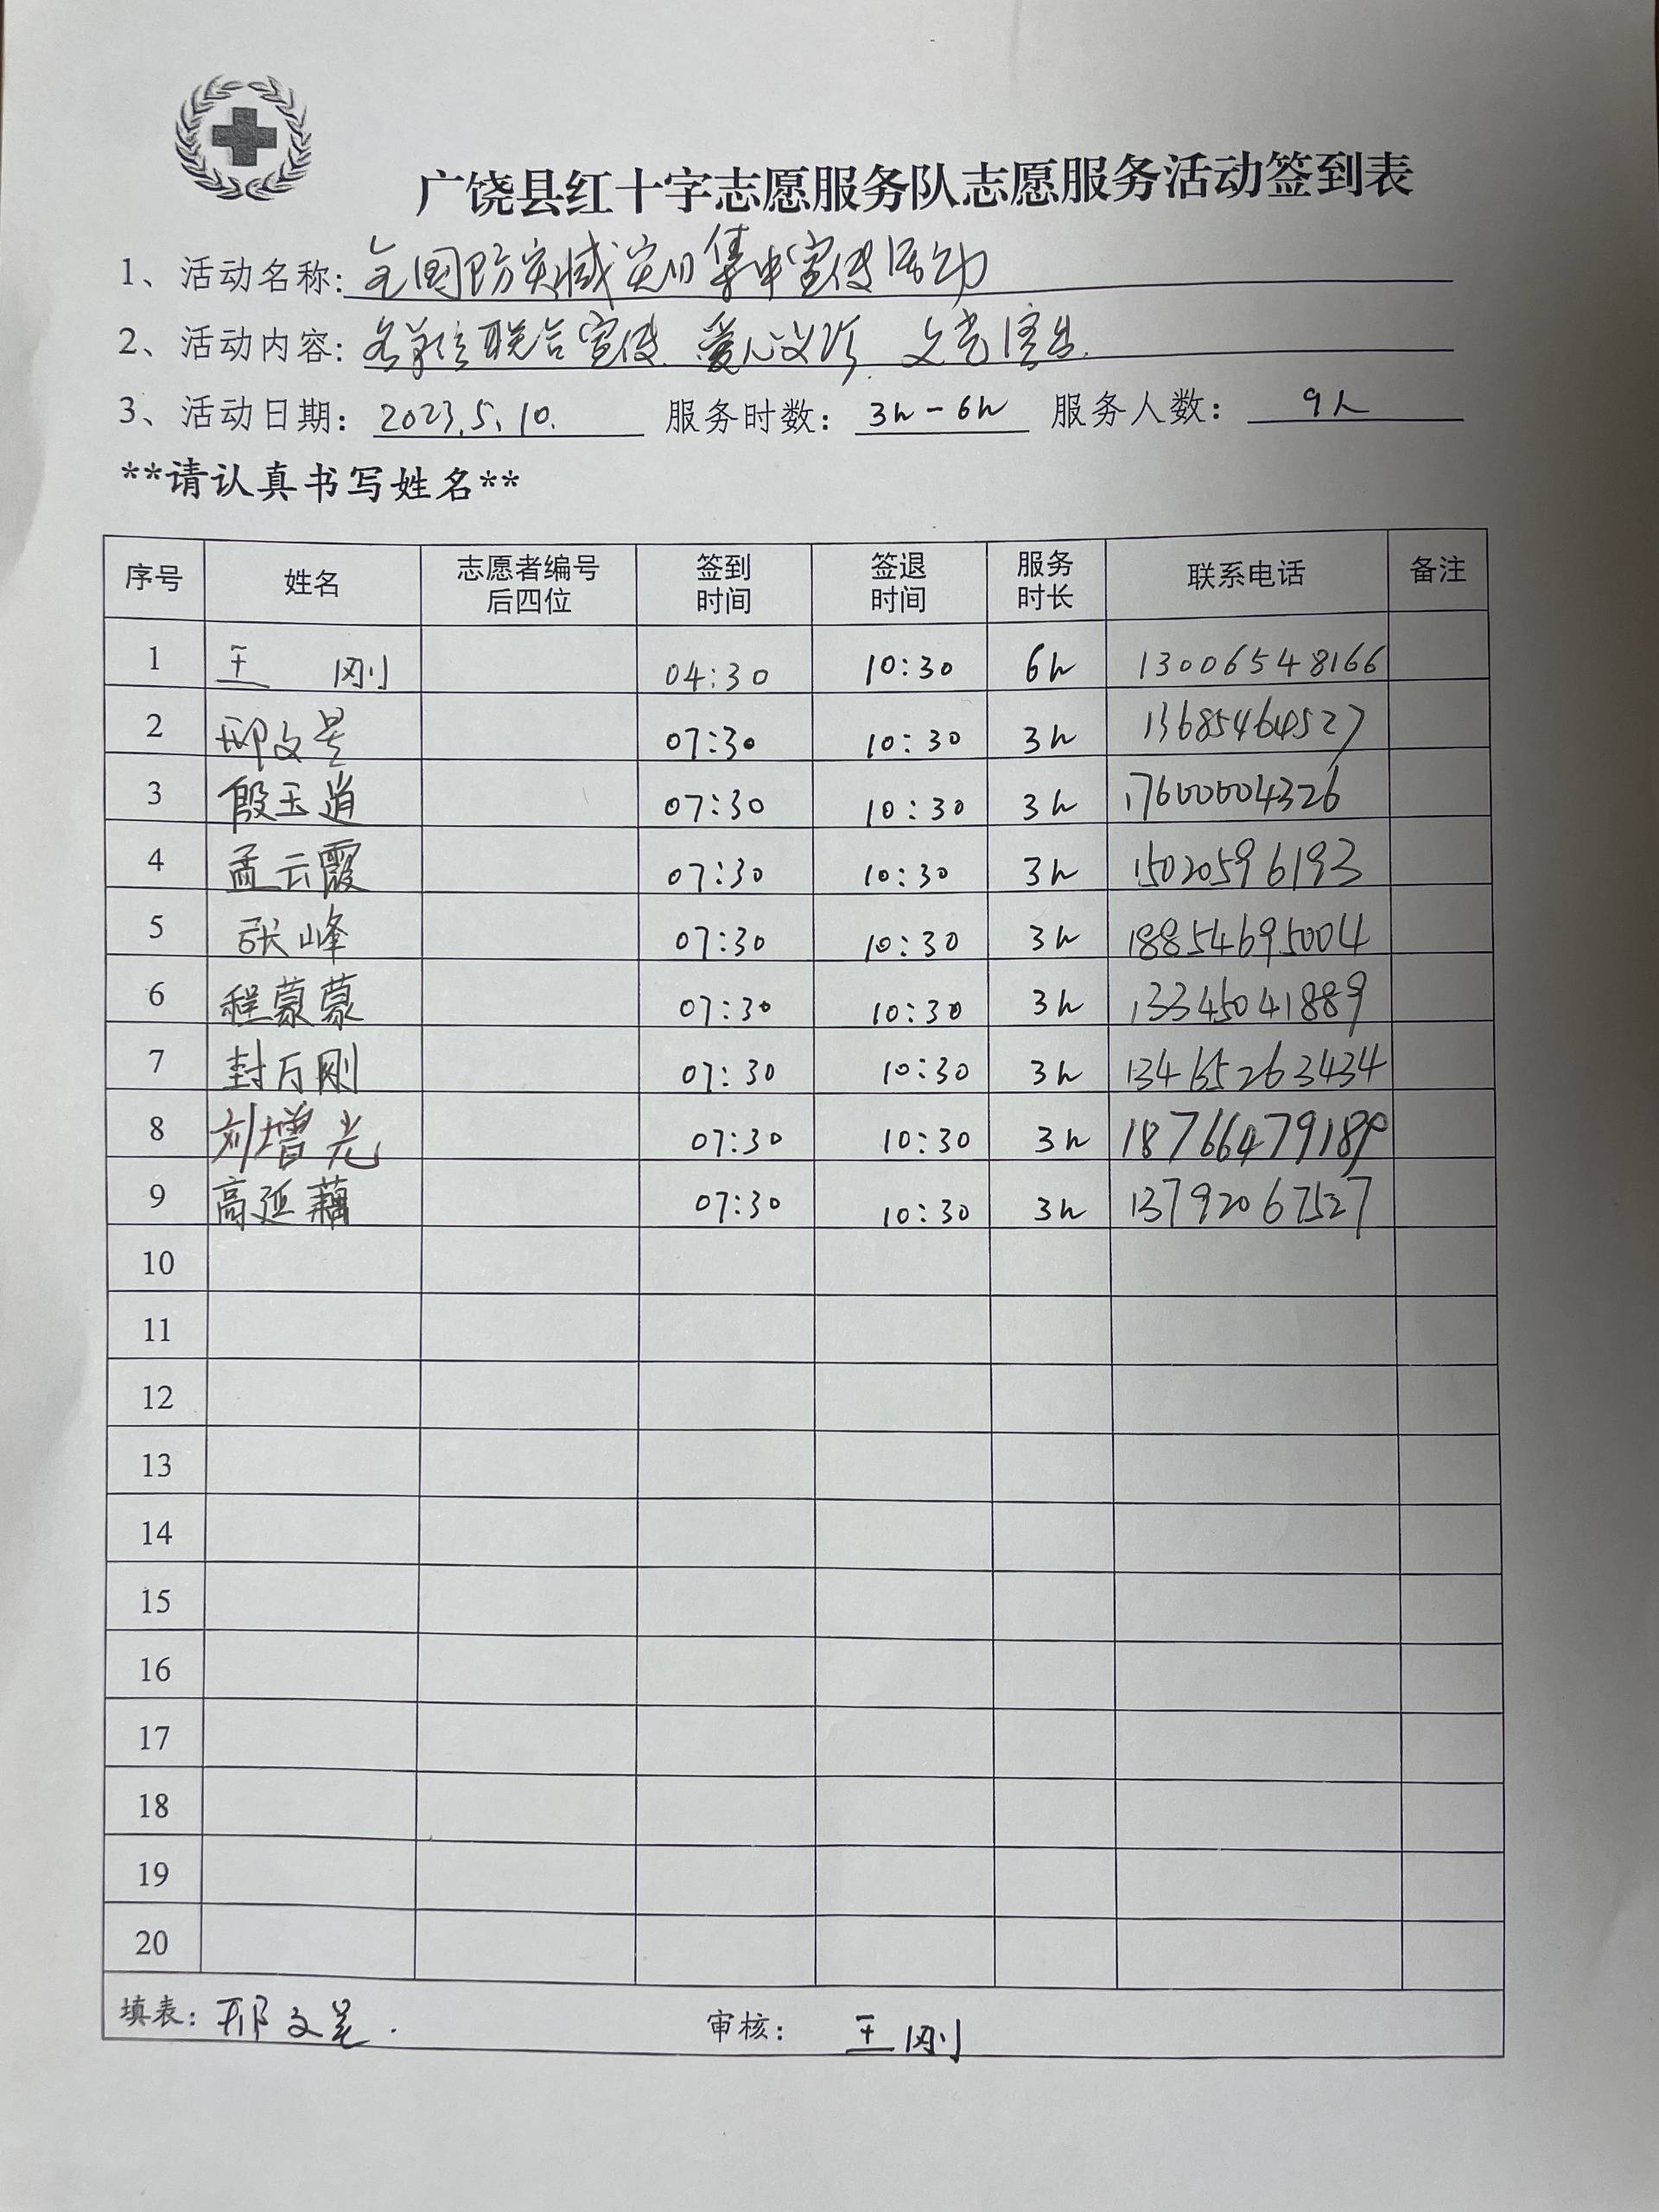 广饶县红十字志愿服务队志愿服务活动签到表
1、活动名称：全国防灾减灾日集中宣传活动
2、活动内容：各单位联合宣传 爱心义诊 文艺演出
3、活动日期：2023.5.10. 服务时数：3h-6h 服务人数：9人
**请认真书写姓名**
序号 姓名 志愿者编号后四位 签到时间 签退时间 服务时长 联系电话 备注
1 王刚 04:30 10:30 6h 13006548166
2 邢文 07:30 10:30 3h 13685464527
3 殷玉逍 07:30 10:30 3h 17600004326
4 孟云霞 07:30 10:30 3h 15020596193
5 张峰 07:30 10:30 3h 18854695004
6 程蒙蒙 07:30 10:30 3h 13345041889
7 封万刚 07:30 10:30 3h
8 刘增光 07:30 10:30 3h 18766479189
9 高延藕 07:30 10:30 3h 13792067527
10
11
12
13
14
15
16
17
18
19
20
填表：邢文 审核：王刚